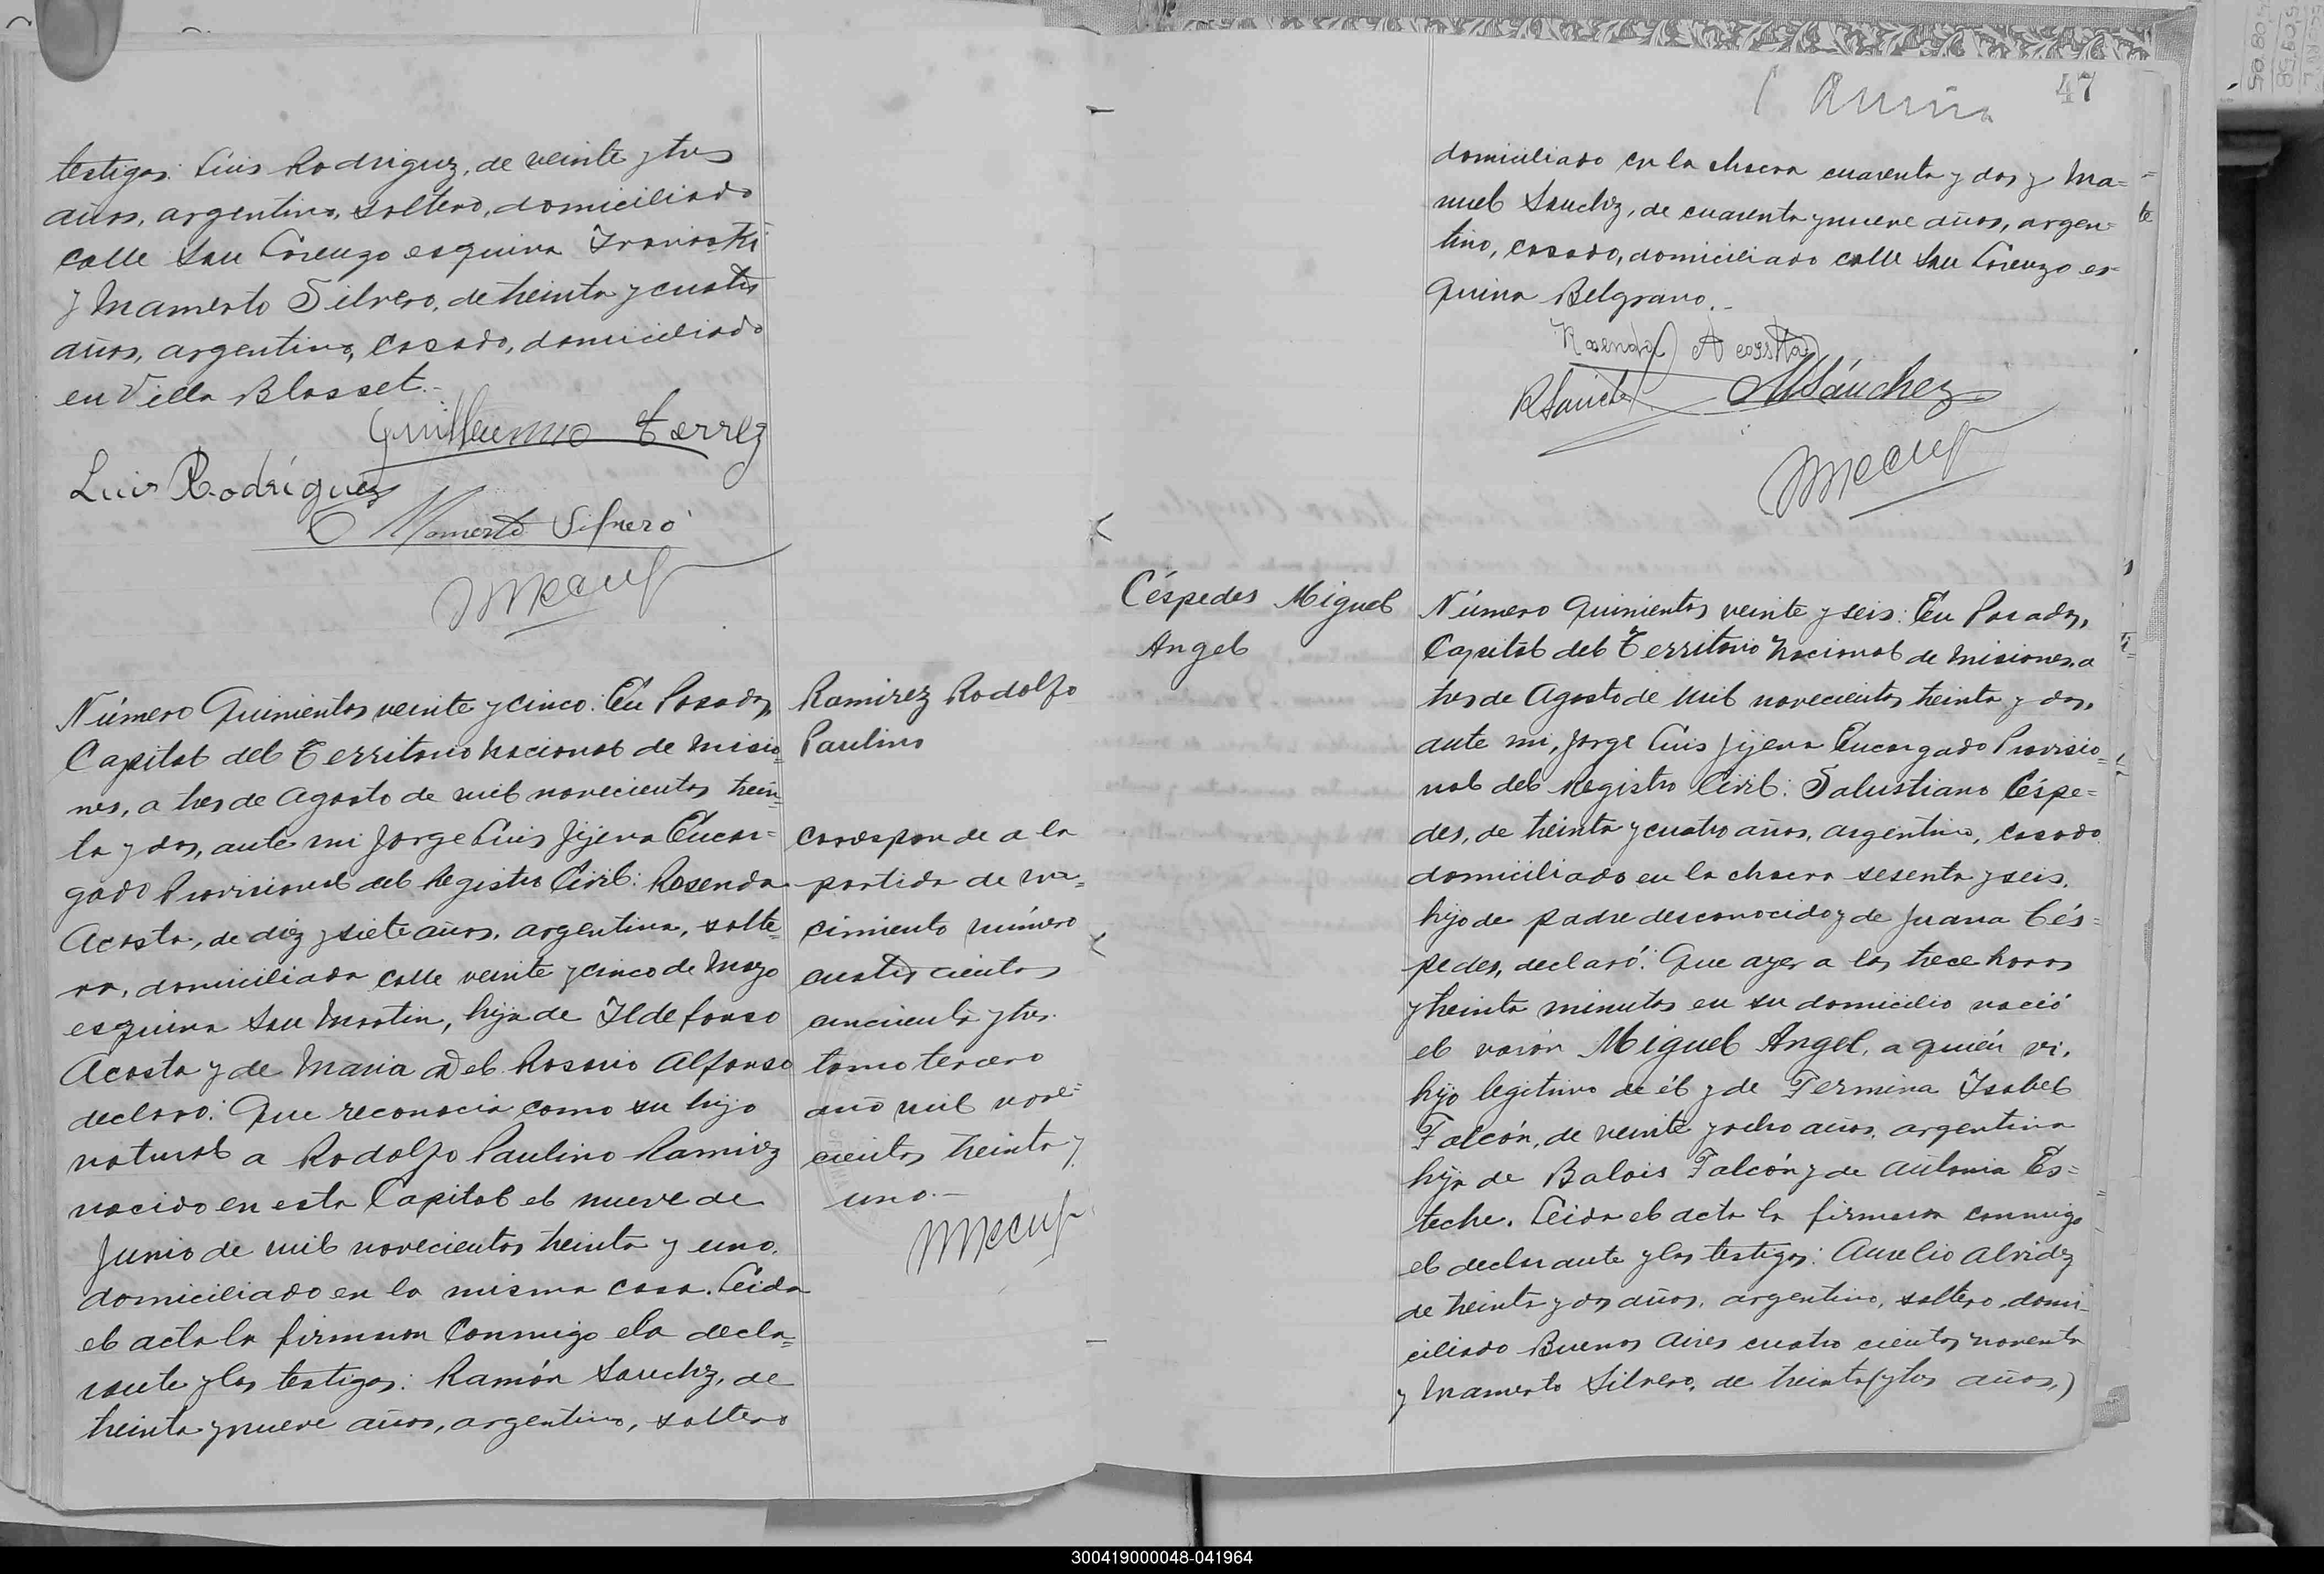 testigos: Luis Rodriguez, de veinte y tres
años, argentino, soltero, domiciliado
calle San Lorenzo esquina
y Mamerto Silvero, de treinta y cuatro
años, argentino, casado, domiciliado
en Villa Blosset.-
Guillermo Terrez
Luis Rodríguez
Mamerto Silvero
Número Quinientos veinte y cinco: En Posadas,
Capital del Territorio Nacional de Misio=
nes, a tres de Agosto de mil novecientos trein=
ta y dos, ante mi Jorge Luis Jijena Encar=
gado Provisional del Registro Civil: Rosenda
Acosta, de diez y siete años, argentina, solte=
ra, domiciliada calle veinte y cinco de Mayo
esquina San Martin, hija de Ildefonso
Acosta y de Maria del Rosario Alfonso
declaro: Que reconocia como su hijo
natural a Rodolfo Paulino Ramirez
nacido en esta Capital el nueve de
Junio de mil novecientos treinta y uno,
domiciliado en la misma casa. Leida
el acta la firmaron conmigo ela decla=
rante y los testigos: Ramón Sanchez, de
treinta y nueve años, argentino, soltero
Ramirez Rodolfo
Paulino
Corresponde a la
partida de na=
cimiento número
cuatrocientos
cincuenta y tres.
tomo tercero
año mil nove=
cientos treinta y
uno.-
47
domiciliado en la chacra cuarenta y dos y Ma=
nuel Sanchez, de cuarenta y nueve años, argen=
tino, casado, domiciliado calle San Lorenzo es-
quina Belgrano.-
Rosenda Acosta
RSanchez MSánchez
Céspedes Miguel
Angel
Número Quinientos veinte y seis: En Posadas,
Capital del Territorio Nacional de Misiones, a
tres de Agosto de mil novecientos treinta y dos,
ante mi, Jorge Luis Jijena Encargado Provisio=
nal del Registro Civil: Salustiano Céspe=
des, de treinta y cuatro años, argentino, casado
domiciliado en la chacra sesenta y seis,
hijo de padre desconocido y de Juana Cés=
pedes, declaró: Que ayer a las trece horas
y treinta minutos en su domicilio nació
el varón Miguel Angel, a quién vi,
hijo legitimo de él y de Fermina Isabel
Falcón, de veinte y ocho años, argentina
hija de Balois Falcón y de Antonia Es=
teche. Leida el acta la firmaron conmigo
el declarante y los testigos: Aurelio Alvidez
de treinta y dos años, argentino, soltero, domi-
ciliado Buenos Aires cuatro cientos noventa
y Mamerto Silvero, de treinta (y tres años,)
300419000048-041964